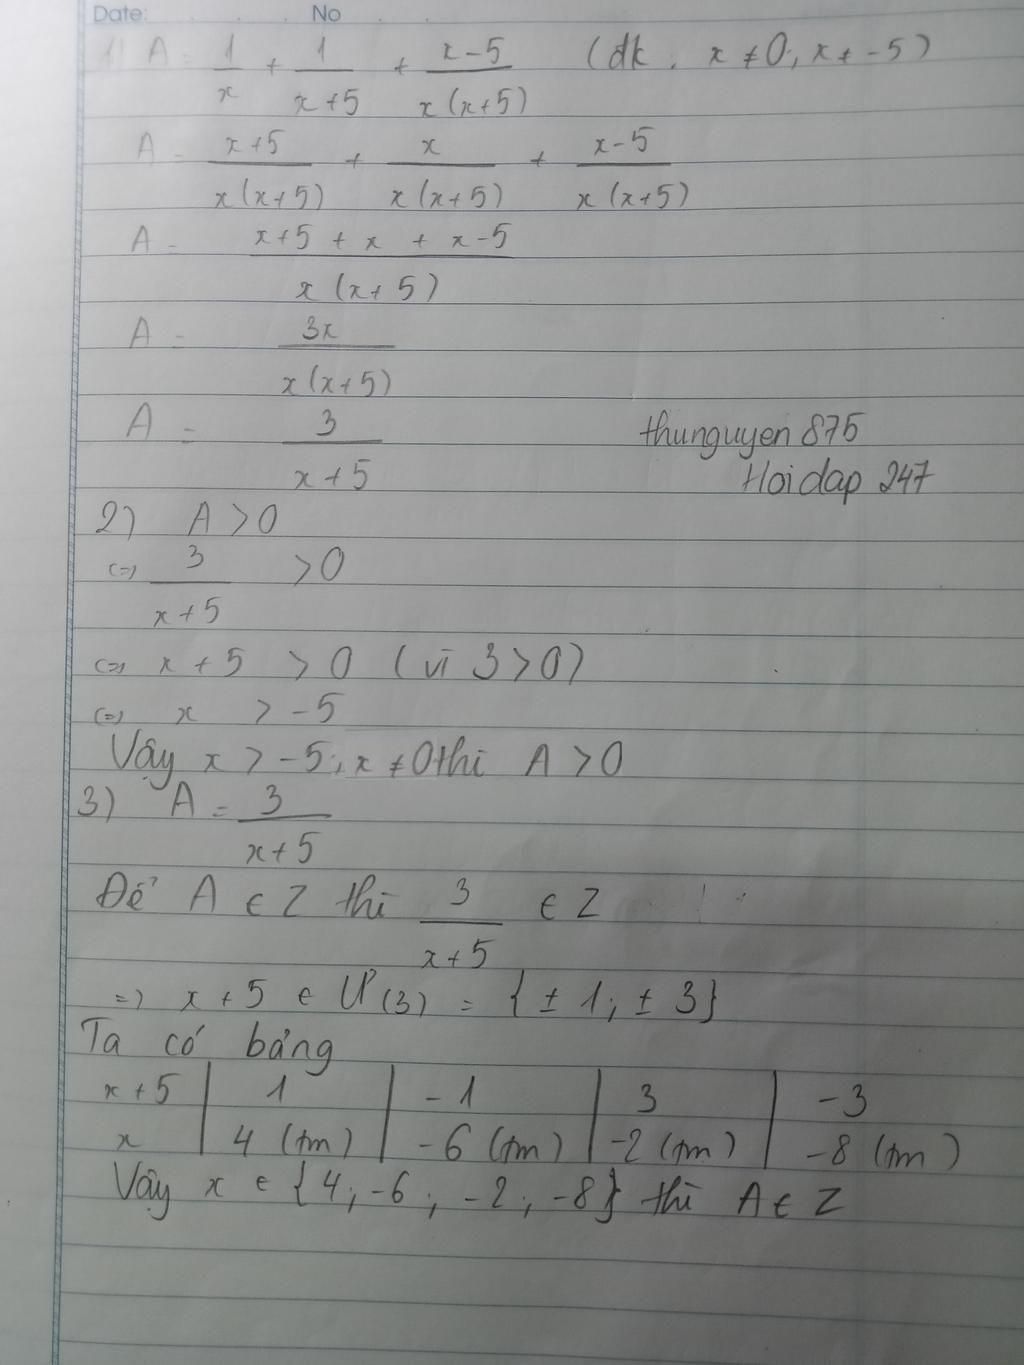 Date: No
1) A = 1/x + 1/(x+5) + (x-5)/(x(x+5)) (đk: x ≠ 0; x ≠ -5)
A = (x+5)/(x(x+5)) + x/(x(x+5)) + (x-5)/(x(x+5))
A = (x+5 + x + x-5)/(x(x+5))
A = 3x/(x(x+5))
A = 3/(x+5)
thunguyen 875
Hoidap 247
2) A > 0
(=) 3/(x+5) > 0
(=) x + 5 > 0 (vì 3 > 0)
(=) x > -5
Vậy x > -5; x ≠ 0 thì A > 0
3) A = 3/(x+5)
Để A ∈ Z thì 3/(x+5) ∈ Z
=) x + 5 ∈ Ư(3) = {± 1; ± 3}
Ta có bảng
x + 5 | 1 | -1 | 3 | -3
x | 4 (tm) | -6 (tm) | -2 (tm) | -8 (tm)
Vậy x ∈ {4; -6; -2; -8} thì A ∈ Z